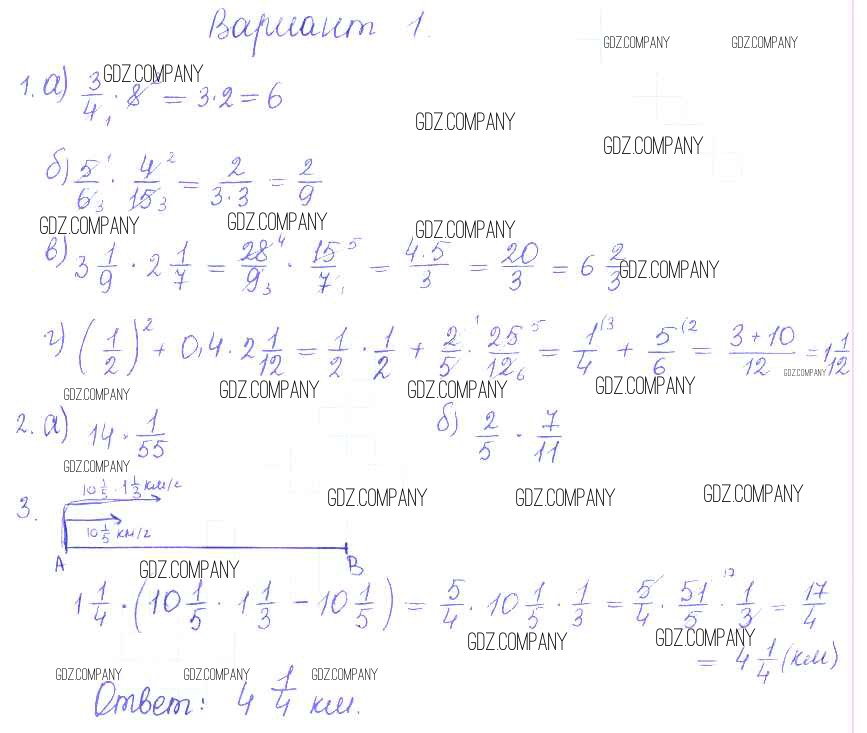 Вариант 1.
GDZ.COMPANY GDZ.COMPANY
GDZ.COMPANY
1. а) 3/4 · 8 = 3·2 = 6
GDZ.COMPANY
GDZ.COMPANY
б) 5/6 · 4/15 = 2/(3·3) = 2/9
GDZ.COMPANY GDZ.COMPANY GDZ.COMPANY
в) 3 1/9 · 2 1/7 = 28/9 · 15/7 = (4·5)/3 = 20/3 = 6 2/3
GDZ.COMPANY
г) (1/2)² + 0,4 · 2 1/12 = 1/2 · 1/2 + 2/5 · 25/12 = 1/4 + 5/6 = (3+10)/12 = 1 1/12
GDZ.COMPANY GDZ.COMPANY GDZ.COMPANY GDZ.COMPANY GDZ.COMPANY
2. а) 14 · 1/55 б) 2/5 · 7/11
GDZ.COMPANY
10 1/5 · 1 1/3 км/г
GDZ.COMPANY GDZ.COMPANY GDZ.COMPANY
3.
10 1/5 км/г
A B
GDZ.COMPANY
1 1/4 · (10 1/5 · 1 1/3 − 10 1/5) = 5/4 · 10 1/5 · 1/3 = 5/4 · 51/5 · 1/3 = 17/4
GDZ.COMPANY GDZ.COMPANY
= 4 1/4 (км)
GDZ.COMPANY GDZ.COMPANY GDZ.COMPANY
Ответ: 4 1/4 км.